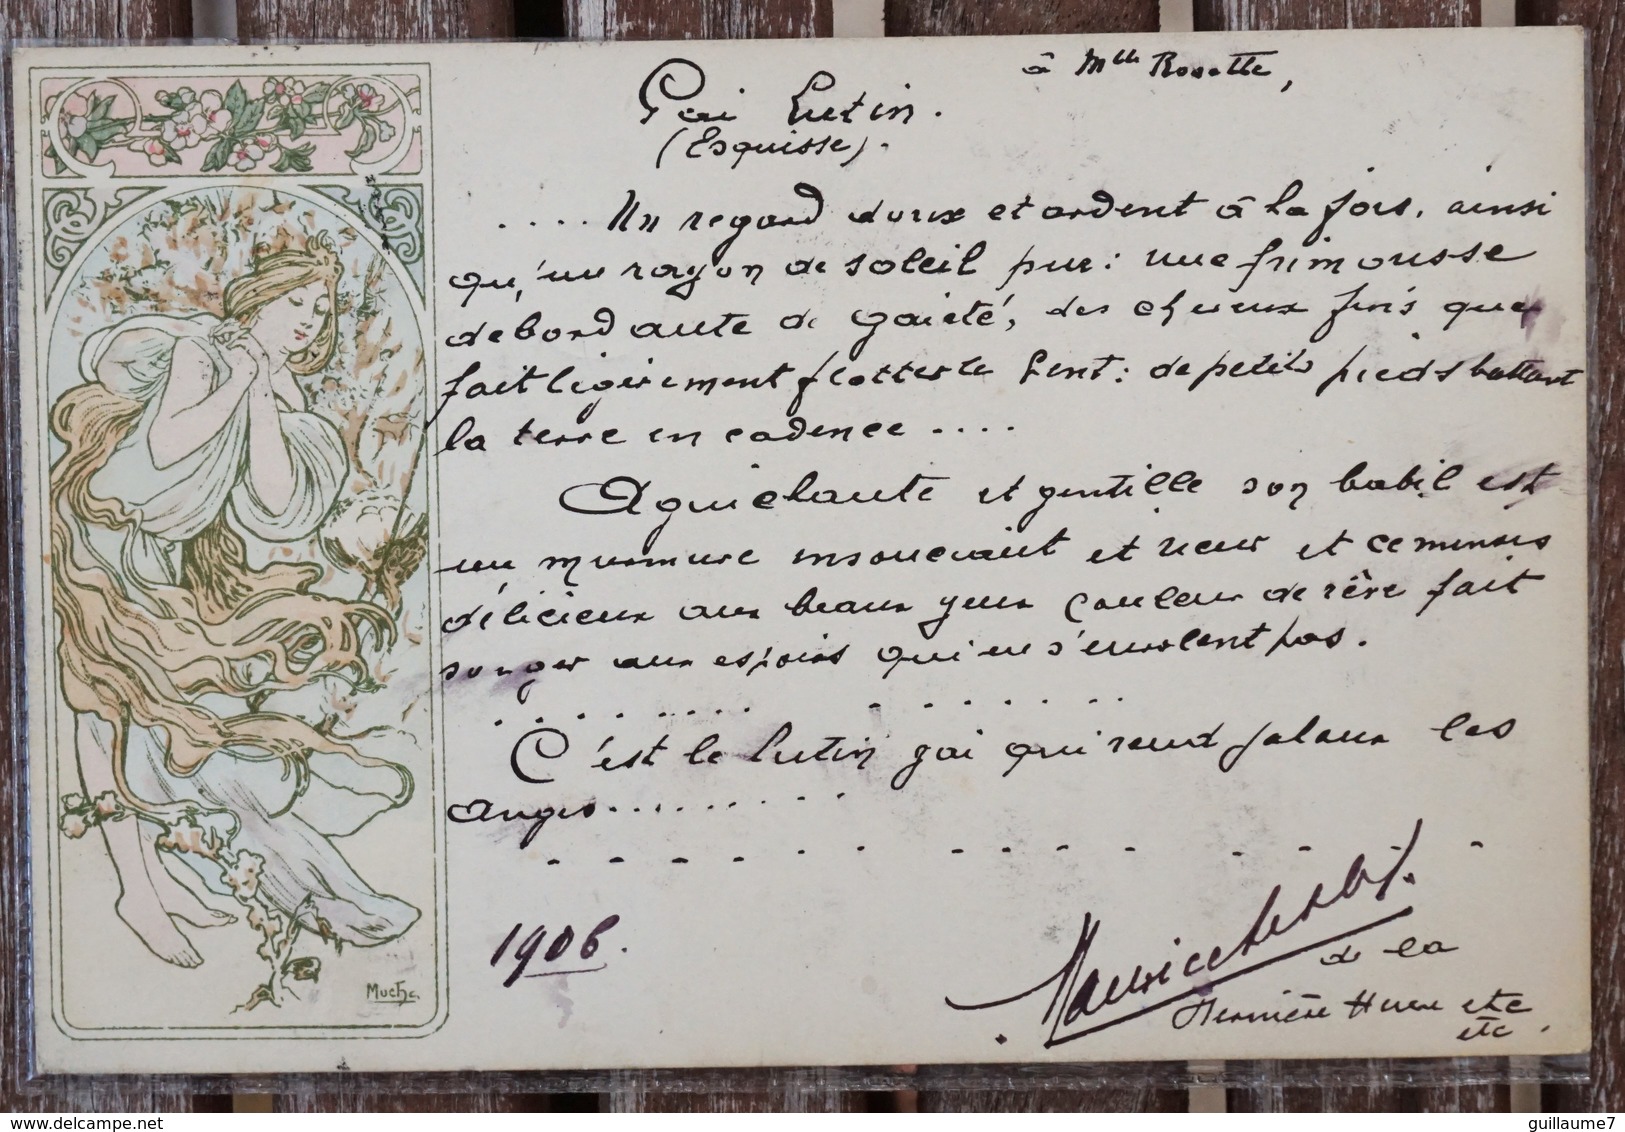 à Mlle Rosette,
Gai Lutin.
(Esquisse).
.... Un regard doux et ardent à la fois, ainsi
qu'un rayon de soleil pur: une frimousse
debordante de gaieté, des cheveux fins que
fait légèrement flotter le Vent: de petits pieds battant
la terre en cadence ....
Aguichante et gentille son babil est
un murmure insouciant et rieur et ce minois
délicieux aux beaux yeux couleur de rêve fait
songer aux espoirs qui ne s'envolent pas.
C'est le lutin gai qui rend jaloux les
anges.........
1906.
Maurice
de la
Dernière Heure etc
etc.
Mucha
delcampe.net
guillaume7